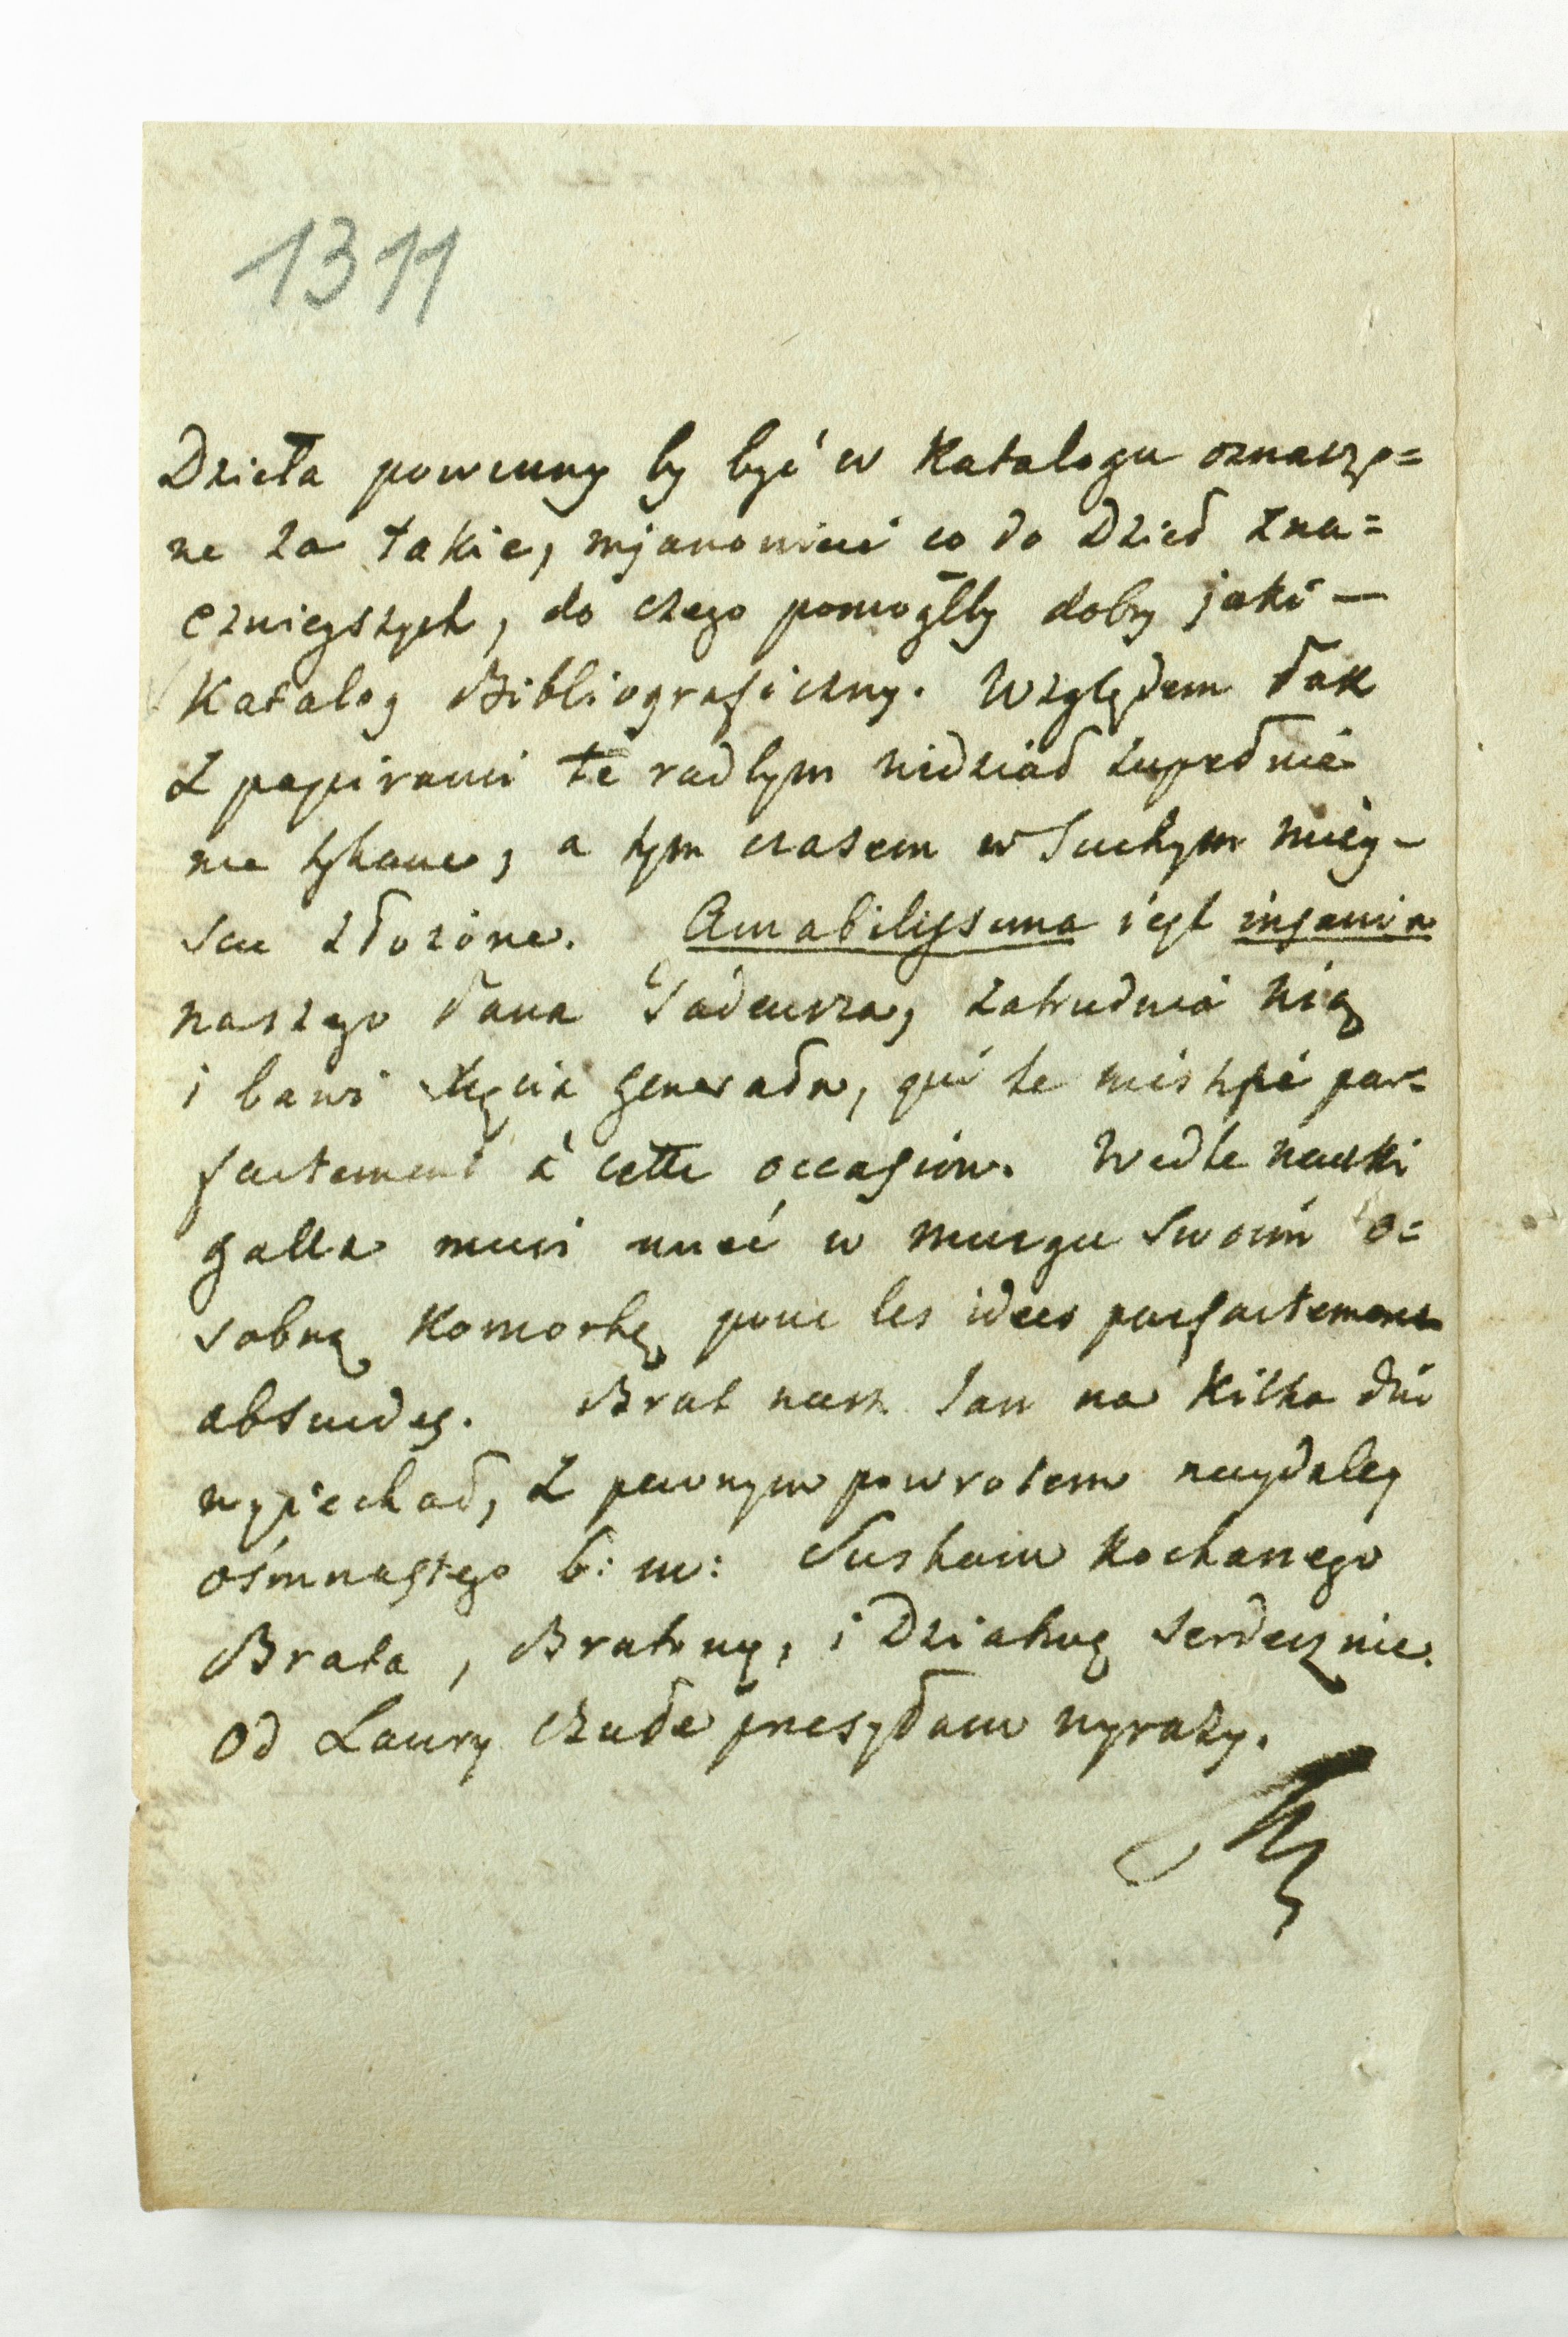 1311
Dzieła powinny by być w Katalogu oznaczo=
ne za takie, mjanowicie co do Dzieł zna=
cznieyszych, do czego pomogłby dobry jaki —
Katalog Bibliograficzny. Względem Pak
z papirami te radbym widział zupełnie
nie tykane, a tym czasem w suchym miey-
scu złożone. Amabilissima iest insania
naszego Pana Tadeusza, zatrudnia nią
i bawi Xięcia Generała, qui te mistifié par=
faitement à cette occasion. Wedle nauki
Galla musi mieć w muzgu swoim o=
sobną komorkę pour les idées parfaitement
absurdes. Brat nasz Jan na kilka dni
wyjechał, z pewnym powrotem naydaley
ośmnastego b: m: Sciskam kochanego
Brata, Bratową, i Dziatwę serdecznie.
Od Laury czułe przesyłam wyrazy.